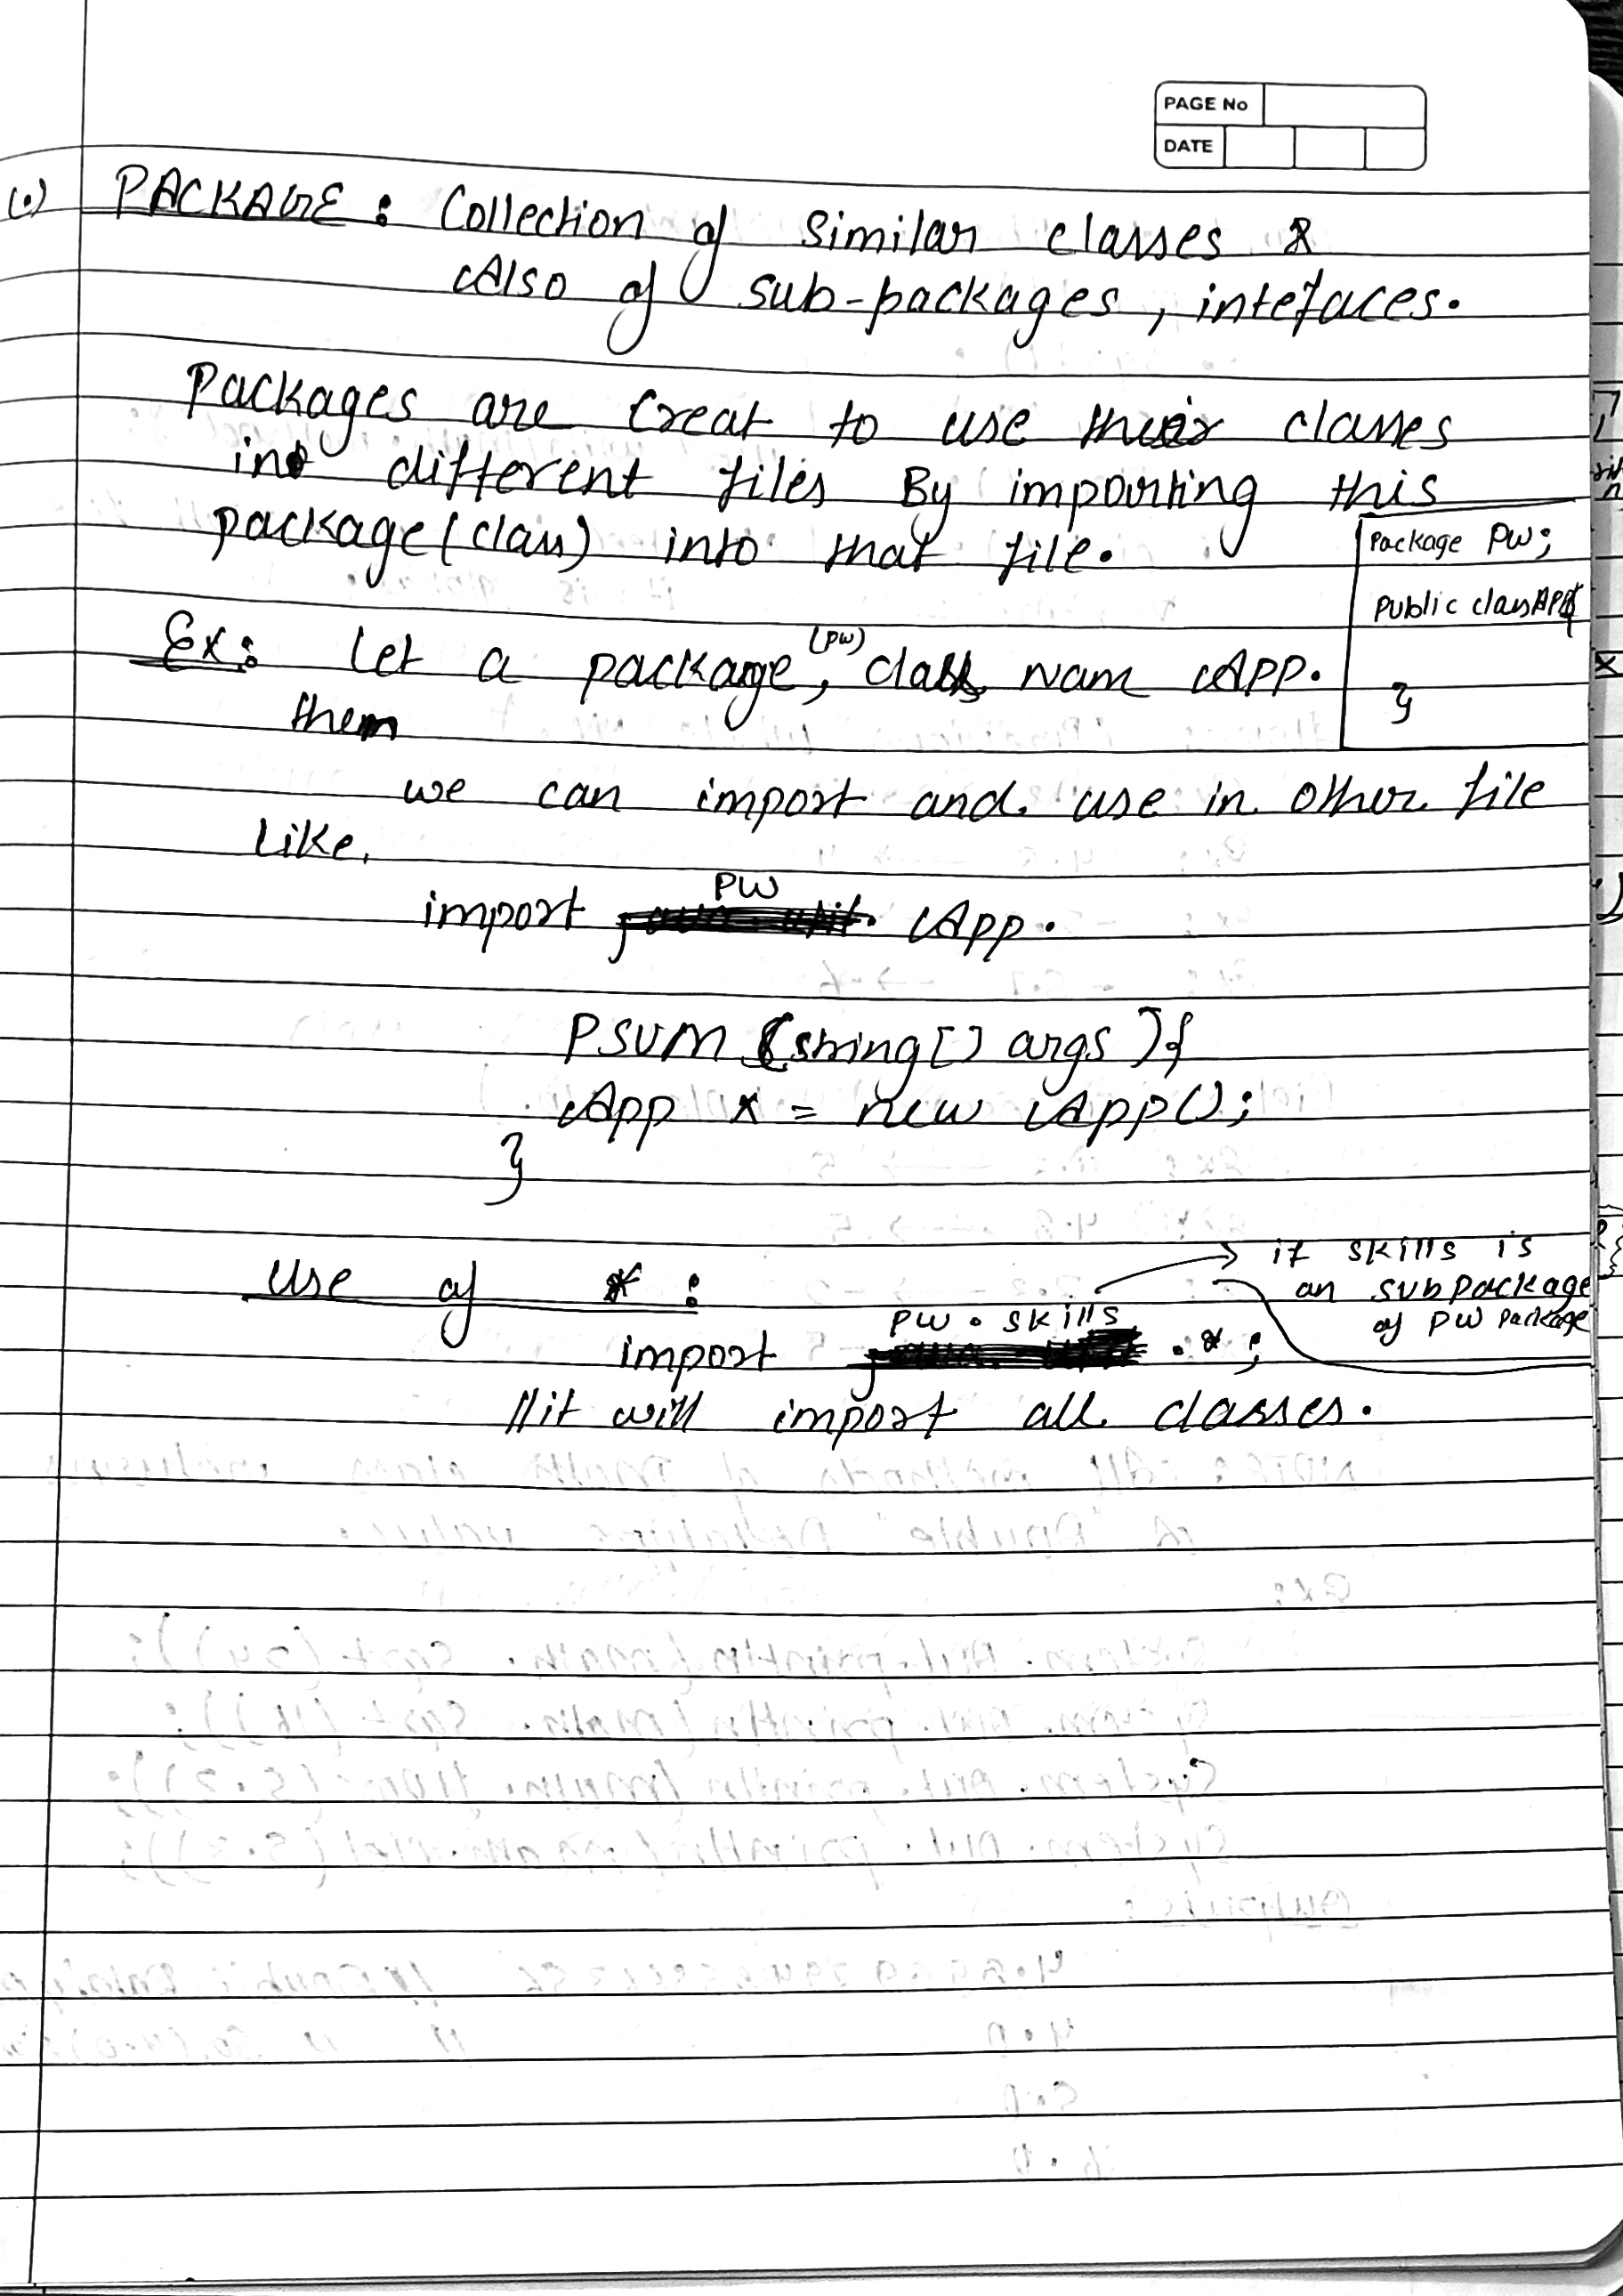 PAGE No
DATE
(.) PACKAGE : Collection of similar classes &
Also of sub-packages, intefaces.
Packages are creat to use their classes
in different files By importing this
package (class) into that file.
Package PW;
Public class APP{
}
Ex: Let a package (PW), class Nam APP.
them
we can import and use in other file
Like,
import PW. App.
PSVM (string[] args ){
App x = new App();
}
Use of * :
import PW . skills .* ;
→ if skills is
an subpackage
of PW package
//it will import all classes.